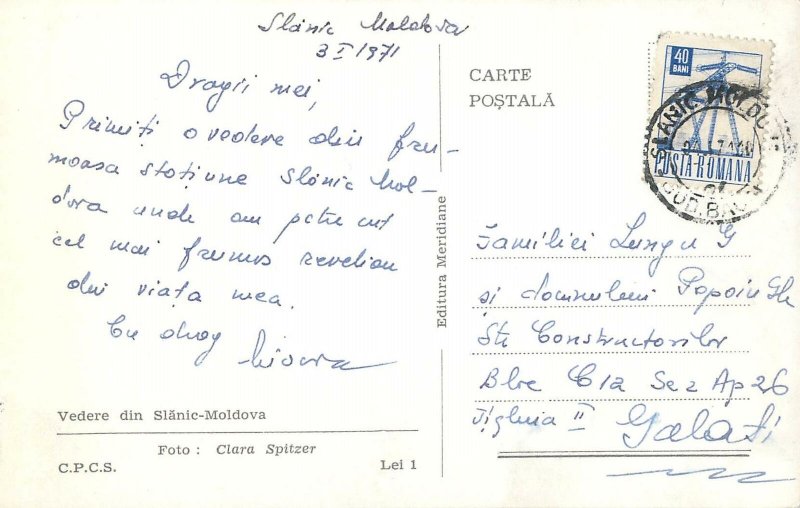 Slănic Moldova
3 I 1971
Dragii mei,
Primiți o vedere din fru-
moasa stațiune Slănic Mol-
dova unde am petrecut
cel mai frumos revelion
din viața mea.
Cu drag
CARTE
POȘTALĂ
40
BANI
POSTA ROMANA
SLANIC MOLDOVA
JUD. BACAU
Editura Meridiane
Familiei Lungu G
și domnului Popoiu Gh
Str Constructorilor
Bloc C12 Sc 2 Ap 26
Țiglina II
Galați
Vedere din Slănic-Moldova
Foto : Clara Spitzer
C.P.C.S.
Lei 1